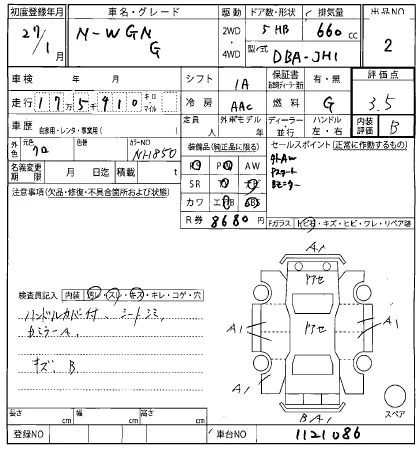 初度登録年月 車名・グレード 駆動 ドア数・形状 排気量 出品NO
27/1月 N-WGN G 2WD ・ 4WD 5 HB 660cc 2
型式 DBA-JH1
車検 年 月 シフト IA 保証書 有・無 評価点
走行 175910 キロ・マイル 冷房 AAC 燃料 G 3.5
車歴 自家用・レンタ・事業用( ) 定員 人 外車モデル 年 ディーラー 並行 ハンドル 左・右 内装評価 B
外色 元色 クロ 色替 カラーNO NH850 装備品(純正品に限る) セールスポイント(正常に作動するもの)
名義変更期限 月 日迄 積載 t
注意事項(欠品・修復・不具合箇所および状態)
PS PW AW
SR ナビ TV
カワ エアB ABS
R券 8680円
外AW
Pスタート
Bモニター
Fガラス トビ石・キズ・ヒビ・ワレ・リペア跡
検査員記入 内装 汚レ・スレ・キズ・キレ・コゲ・穴
ハンドルカバー付、シートシミ
キズ B
A1
A1
A1
A1
BA1
スペア
長さ cm 幅 cm 高さ cm
登録NO 車台NO 1121086